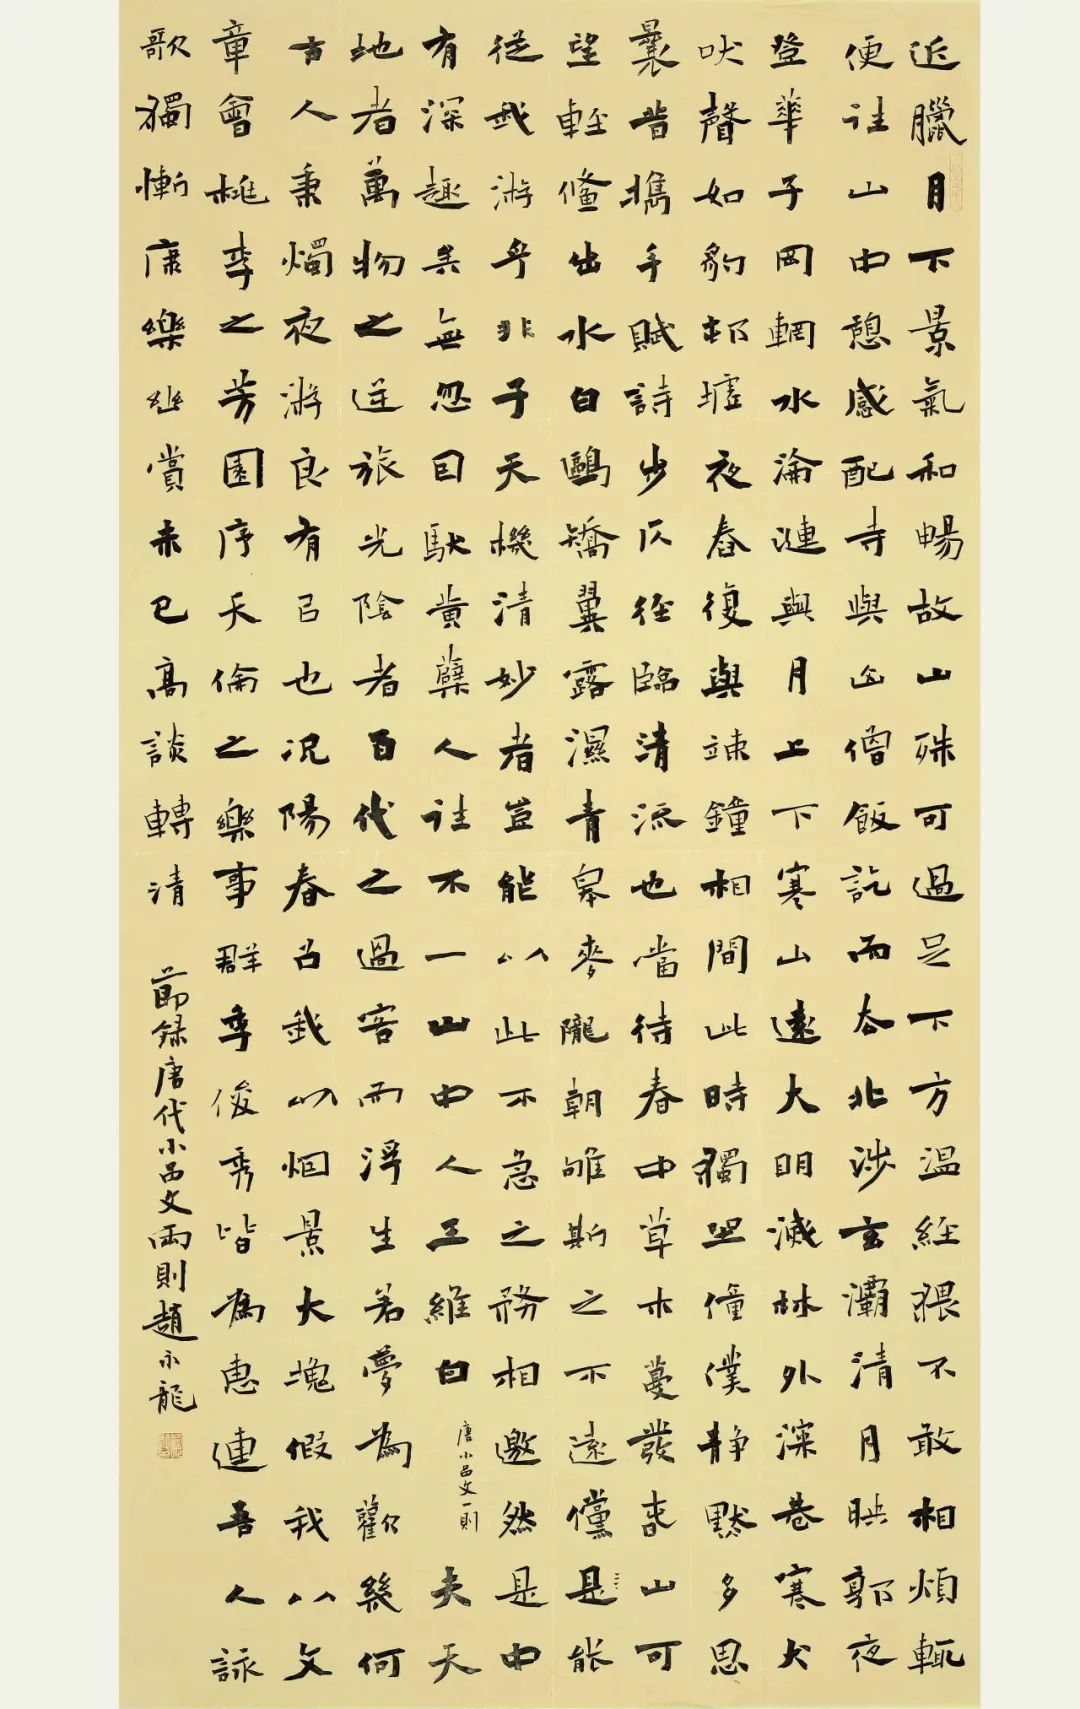 近臘月下景氣和暢故山殊可過足下方溫經猥不敢相煩輒
便往山中憩感配寺與山僧飯訖而去北涉玄灞清月映郭夜
登華子岡輞水淪漣與月上下寒山遠大明滅林外深巷寒犬
吠聲如豹邨墟夜舂復與疎鐘相間此時獨坐僮僕静默多思
曩昔攜手賦詩步仄徑臨清流也當待春中草木蔓發春山可
望輕鯈出水白鷗矯翼露濕青皋麥隴朝雊斯之不遠儻是能
從我游乎非子天機清妙者豈能以此不急之務相邀然是中
有深趣矣無忽因馱黄蘗人往不一山中人王維白
唐小品文一則
夫天
地者萬物之逆旅光陰者百代之過客而浮生若夢為歡幾何
古人秉燭夜游良有以也況陽春召我以烟景大塊假我以文
章會桃李之芳園序天倫之樂事群季俊秀皆為惠連吾人詠
歌獨慚康樂幽賞未已高談轉清
節録唐代小品文兩則趙龍